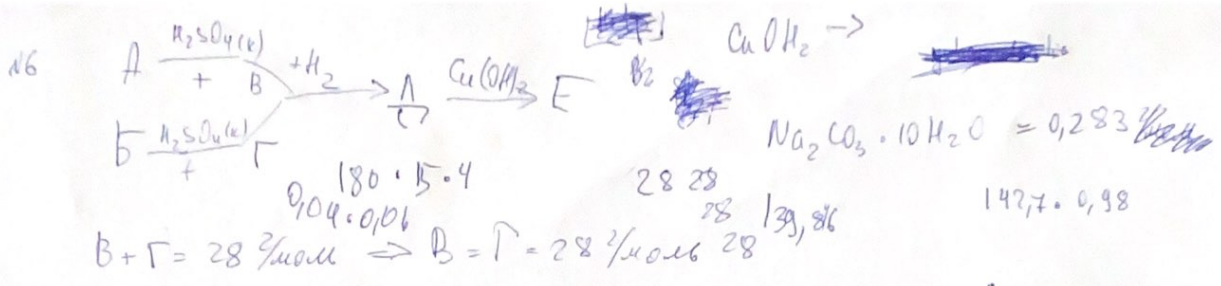 №6
А H₂SO₄(к) + В +H₂ Д Cu(OH)₂ Е
Б H₂SO₄(к) + Г
CuOH₂ →
Na₂CO₃ · 10H₂O = 0,283
180 · 15 · 4
0,04 · 0,06
28 28
28
139,816
142,7 · 0,98
В + Г = 28 г/моль ⇒ В = Г = 28 г/моль 28